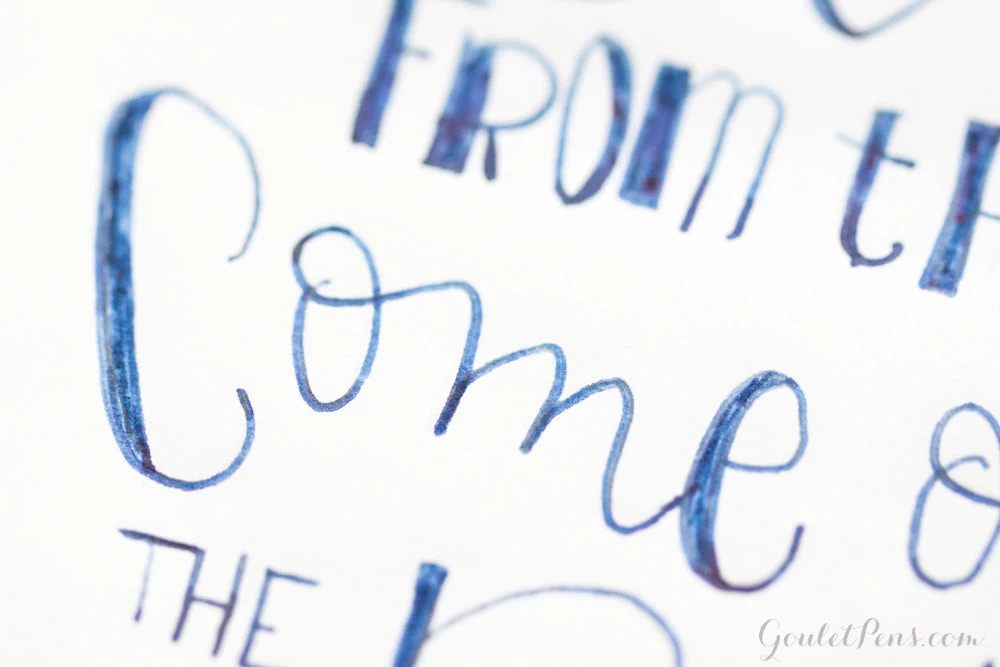 FROM tH
Come o
THE
GouletPens.com